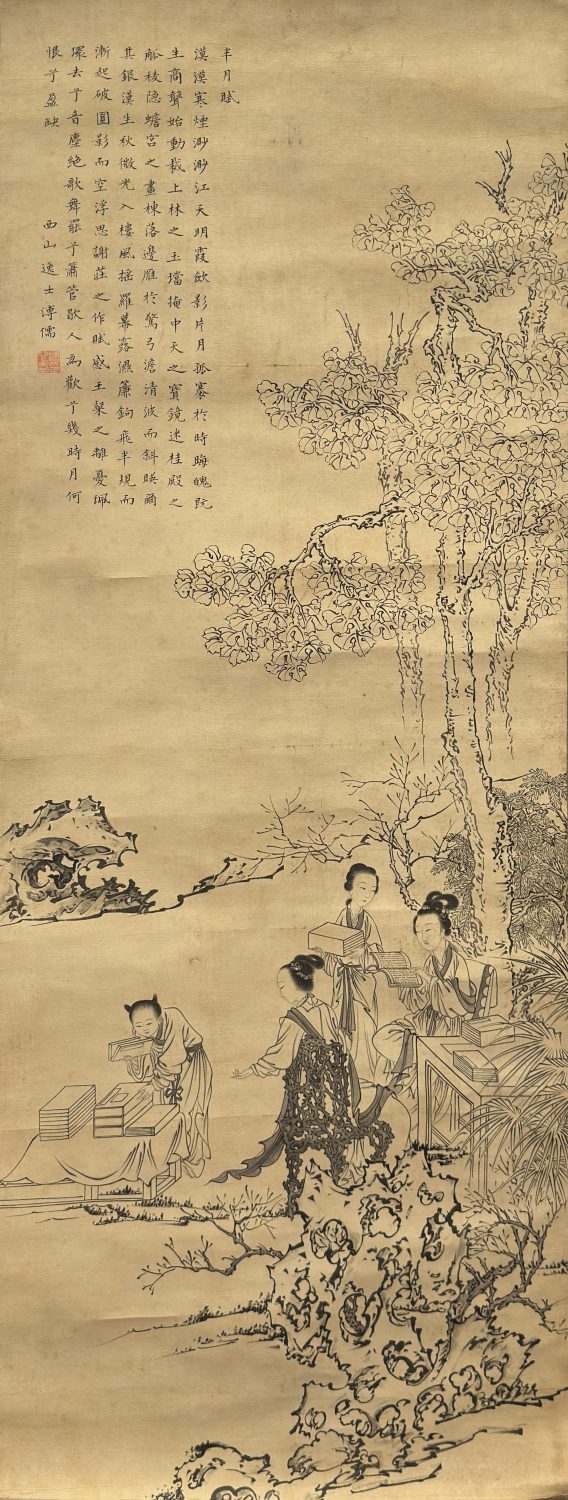 半月賦
漠漠寒煙渺渺江天明霞斂影片月孤褰於時晦魄既
生商聲始動裁上林之玉璫掩中天之寶鏡迷桂殿之
觚棱隐蟾宮之畫棟落邊雁於驚弓澹清波而斜映爾
其銀漢生秋微光入樓風搖羅幕露濕簾鉤飛半規而
漸起破圓影而空浮思謝莊之作賦感王粲之離憂珮
環去兮音塵絶歌舞罷兮簫管歇人為歡兮幾時月何
恨兮盈缺
西山逸士溥儒